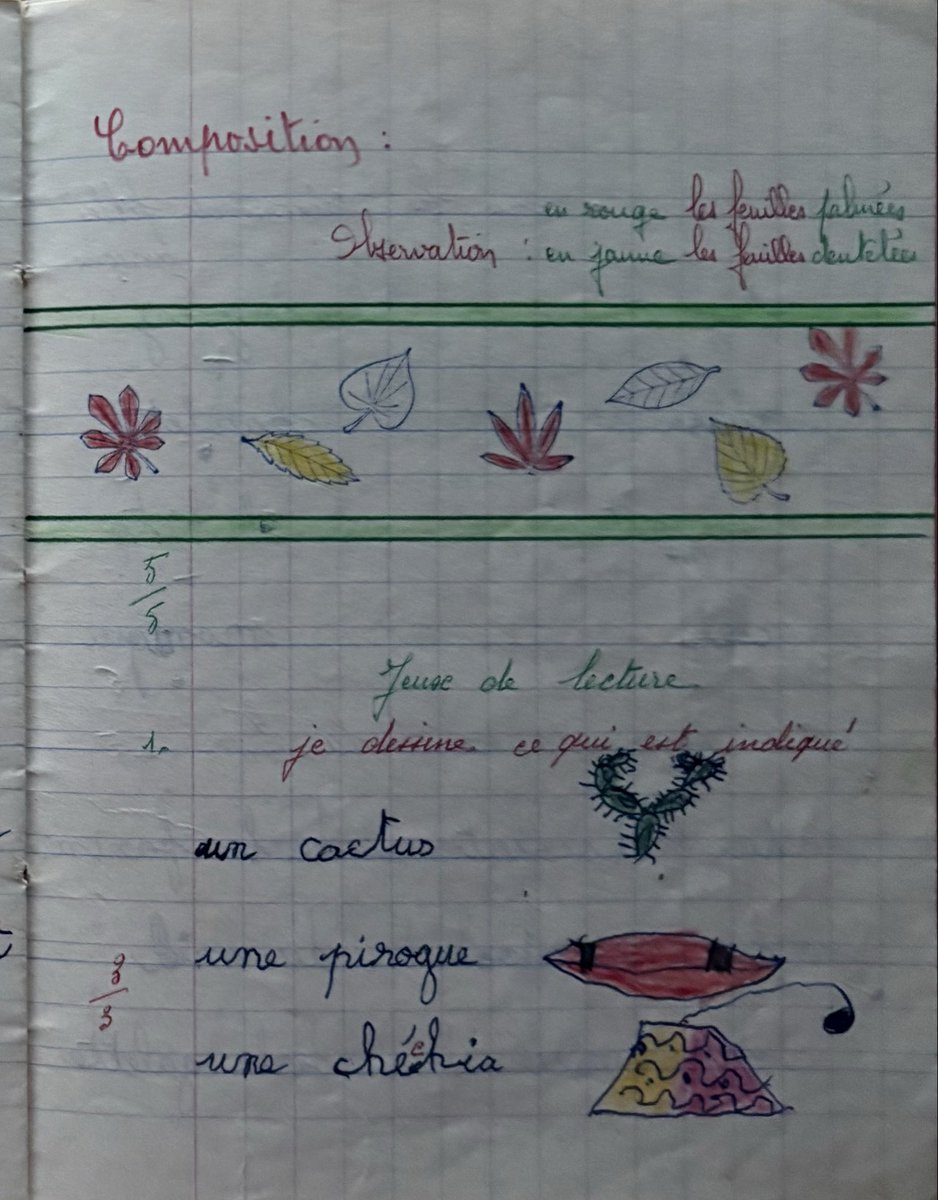 Composition :
en rouge les feuilles palmées
Observation : en jaune les feuilles dentelées
5
5
Jeux de lecture
1. je dessine ce qui est indiqué
un cactus
une pirogue
3
3
une chéchia